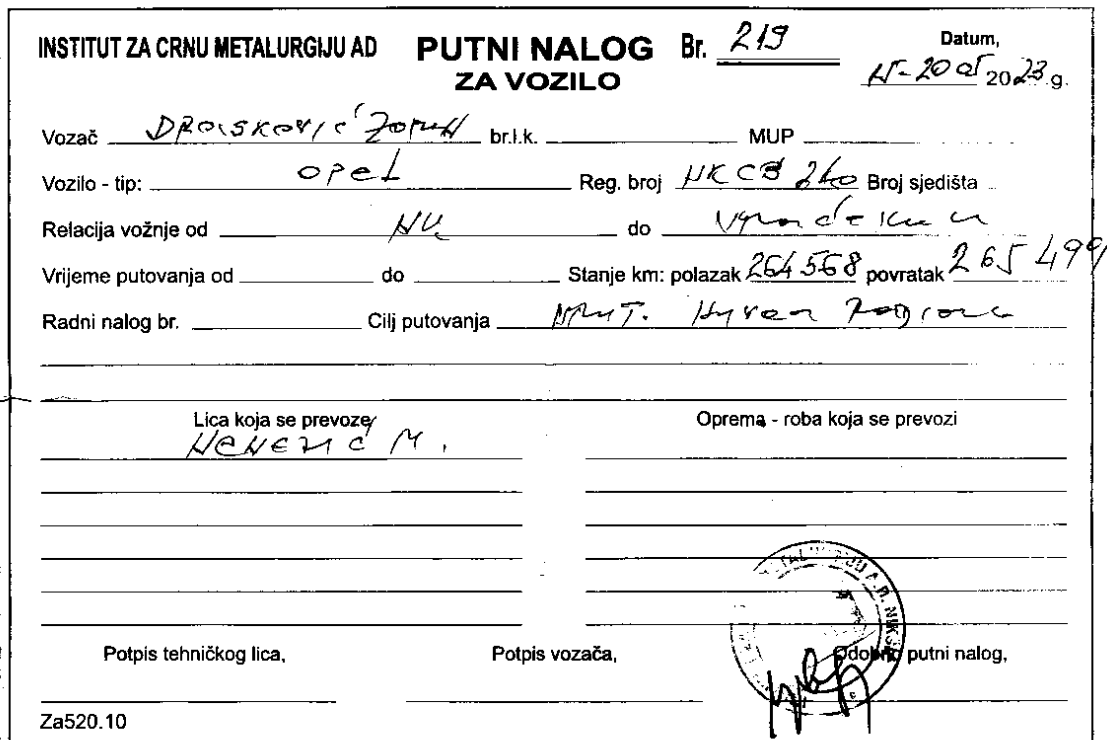 INSTITUT ZA CRNU METALURGIJU AD PUTNI NALOG Br. 219 Datum,
ZA VOZILO 15-20 05 2023.g.
Vozač DROBSKOVIĆ br.l.k. MUP
Vozilo - tip: OPEL Reg. broj NK CB 240 Broj sjedišta
Relacija vožnje od do
Vrijeme putovanja od do Stanje km: polazak 264568 povratak 265 499
Radni nalog br. Cilj putovanja
Lica koja se prevoze Oprema - roba koja se prevozi
NENEZIĆ M.
Potpis tehničkog lica, Potpis vozača, Odobrio putni nalog,
Za520.10